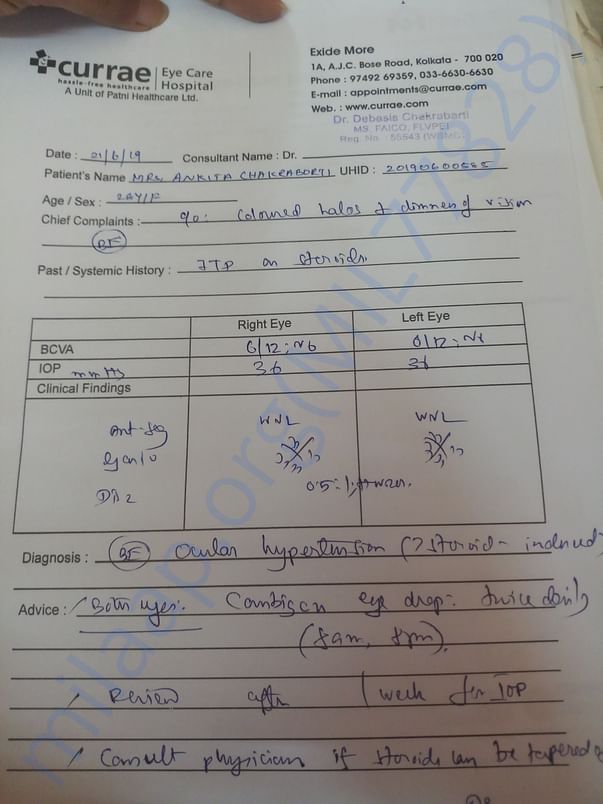 currae Eye Care
hassle-free healthcare Hospital
A Unit of Patni Healthcare Ltd.
Exide More
1A, A.J.C. Bose Road, Kolkata - 700 020
Phone : 97492 69359, 033-6630-6630
E-mail : appointments@currae.com
Web. : www.currae.com
Dr. Debasis Chakrabarti
MS, FAICO, FLVPEI
Reg. No. : 55543 (WBMC)
Date : 21/6/19 Consultant Name : Dr.
Patient's Name MRS ANKITA CHAKRABORTI UHID :
Age / Sex :
Chief Complaints : c/o: Coloured halos & dimness of vision
(BE)
Past / Systemic History : ITP on steroids
Right Eye Left Eye
BCVA 6/12 ; N6 6/12 ; N6
IOP mmHg 36 36
Clinical Findings
Ant-seg WNL WNL
Gonio
0.5:1
Diagnosis : (BE) Ocular hypertension (? steroid- induced
Advice : Both eyes: Combigan eye drop: twice daily
(8am, 8pm).
Review after 1 week for IOP
Consult physician if steroids can be tapered
milaap.org(MIL77828)